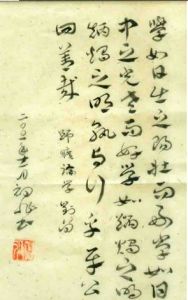 學如日出之陽壯而好學如日
中之光老而好學如炳燭之明
炳燭之明孰与行乎平公
曰善哉
師曠論學